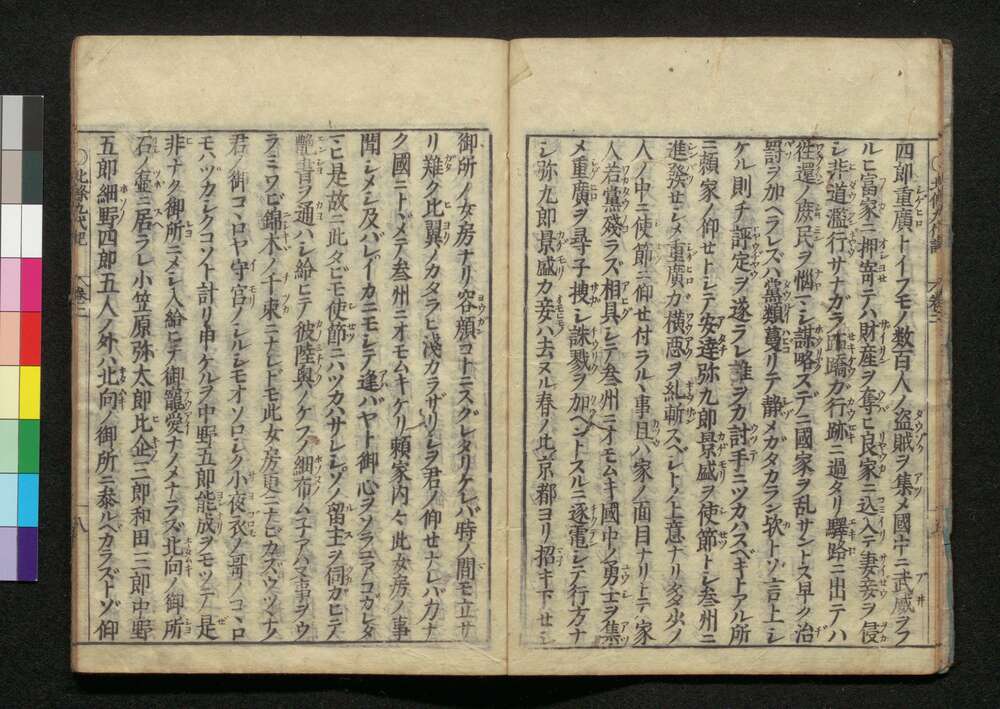 四郎重廣トイフモノ数百人ノ盗賊ヲ集メ國中ニ武威ヲフ
ルヒ富家ニ押寄テハ財産ヲ奪ヒ良家ニ込入テ妻妾ヲ侵
シ非道濫行サナガラ盗蹠ガ行跡ニ過タリ驛路ニ出テハ
往還ノ庶民ヲ惱マシ謀略ステニ國家ヲ乱サントス早ク治
罸ヲ加ヘラレズハ黨類蔓リテ静メガタカラン欤トゾ言上シ
ケル則チ評定ヲ遂ラレ誰ヲカ討手ニツカハスベキトアル所
ニ頼家ノ仰セトシテ安達弥九郎景盛ヲ使節トシ叁州ニ
進發セシメ重廣カ横惡ヲ糺斬スベシトノ上意ナリ多少ノ
人ノ中ニ使節ニ仰セ付ラルヽ事且ハ家ノ面目ナリトテ家
人若黨殘ラズ相具シテ叁州ニオモムキ國中ノ勇士ヲ集
メ重廣ヲ尋子捜シ誅戮ヲ加ヘントスルニ逐電シテ行方ナ
シ弥九郎景盛カ妾ハ去ヌル春ノ比京都ヨリ招キ下セシ
御所ノ女房ナリ容顔コトニスグレタリケレバ時ノ間モ立サ
リ難ク比翼ノカタラヒ淺カラザリシヲ君ノ仰セナレバカナ
ク國ニトヾメテ叁州ニオモムキケリ頼家内々此女房ノ事
聞シメシ及バレイカニモシテ逢バヤト御心ヲソラニアコガレタ
マヒ是故ニ此タビモ使節ニハツカハサレシゾノ留主ヲ伺ガヒテ
艶書ヲ通ハシ給ヒテ彼陸奥ノケフノ細布ムネアハヌ事ヲウ
ラミワビ錦木ノ千束ニナレドモ此女房更ニナビカズウツナノ
君ノ御コヽロヤ守宮ノシルシモオソロシク小夜衣ノ哥ノコヽロ
モハヅカシクコソト計リ申ケルヲ中野五郎能成ヲモツテ是
非ナク御所ニメシ入給ヒテ御籠愛ナノメナラズ北向ノ御所
石ノ壷ニ居ラレ小笠原弥太郎比企三郎和田三郎中野
五郎細野四郎五人ノ外ハ北向ノ御所ニ叅ルベカラズトゾ仰
北條九代記
卷二
八